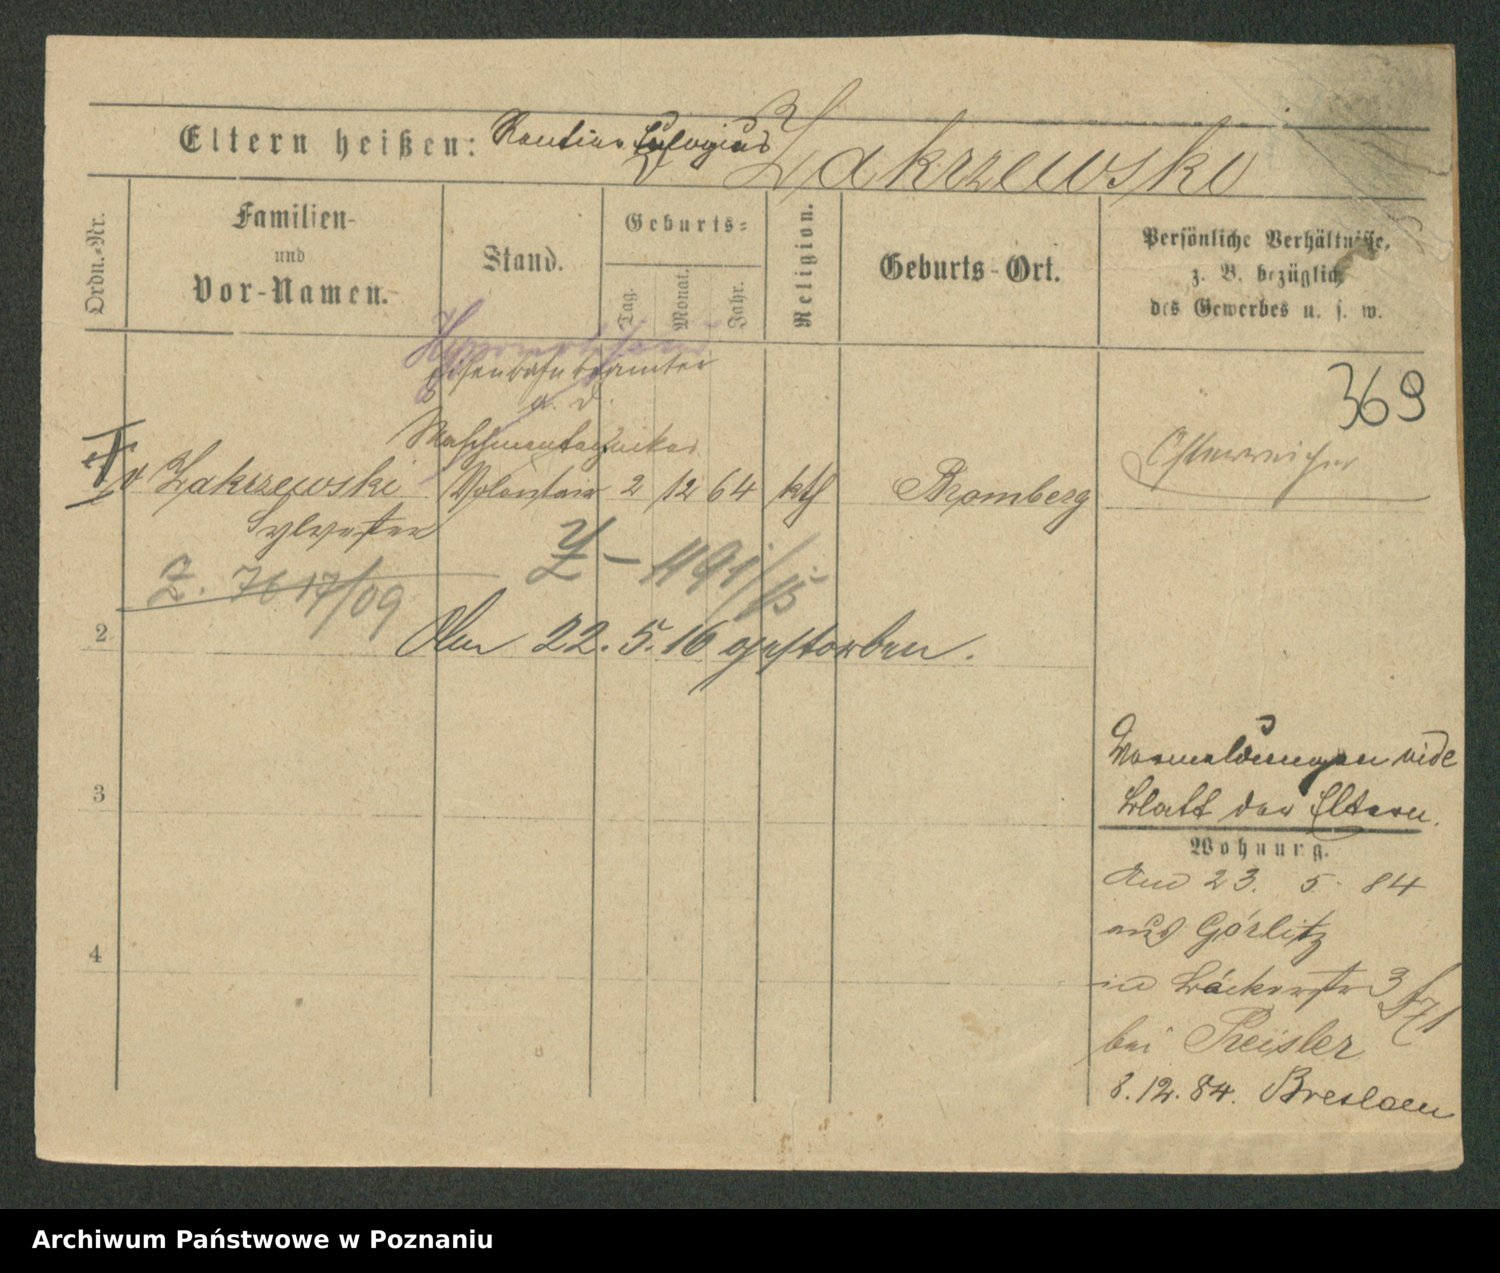 Zakrzewski
Eltern heißen:
Ordn.-Nr.
Familien-
und
Vor-Namen.
Stand.
Geburts-
Tag.
Monat.
Jahr.
Religion.
Geburts-Ort.
Persönliche Verhältnisse,
z. B. bezüglich
des Gewerbes u. s. w.
Eisenbahnbeamter
a. D.
369
Maschinentechniker
v Zakrzewski Volontair 2 12 64 kth Bromberg
Sylvester
Z. 7617/09
Z - 1191/15
2
Am 22. 5. 16 gestorben.
3
4
Vormeldungen vide
Blatt der Eltern.
Wohnung.
Am 23. 5. 84
aus Görlitz
in Bäckerstr 3
bei Preisler
8.12.84. Breslau
Archiwum Państwowe w Poznaniu